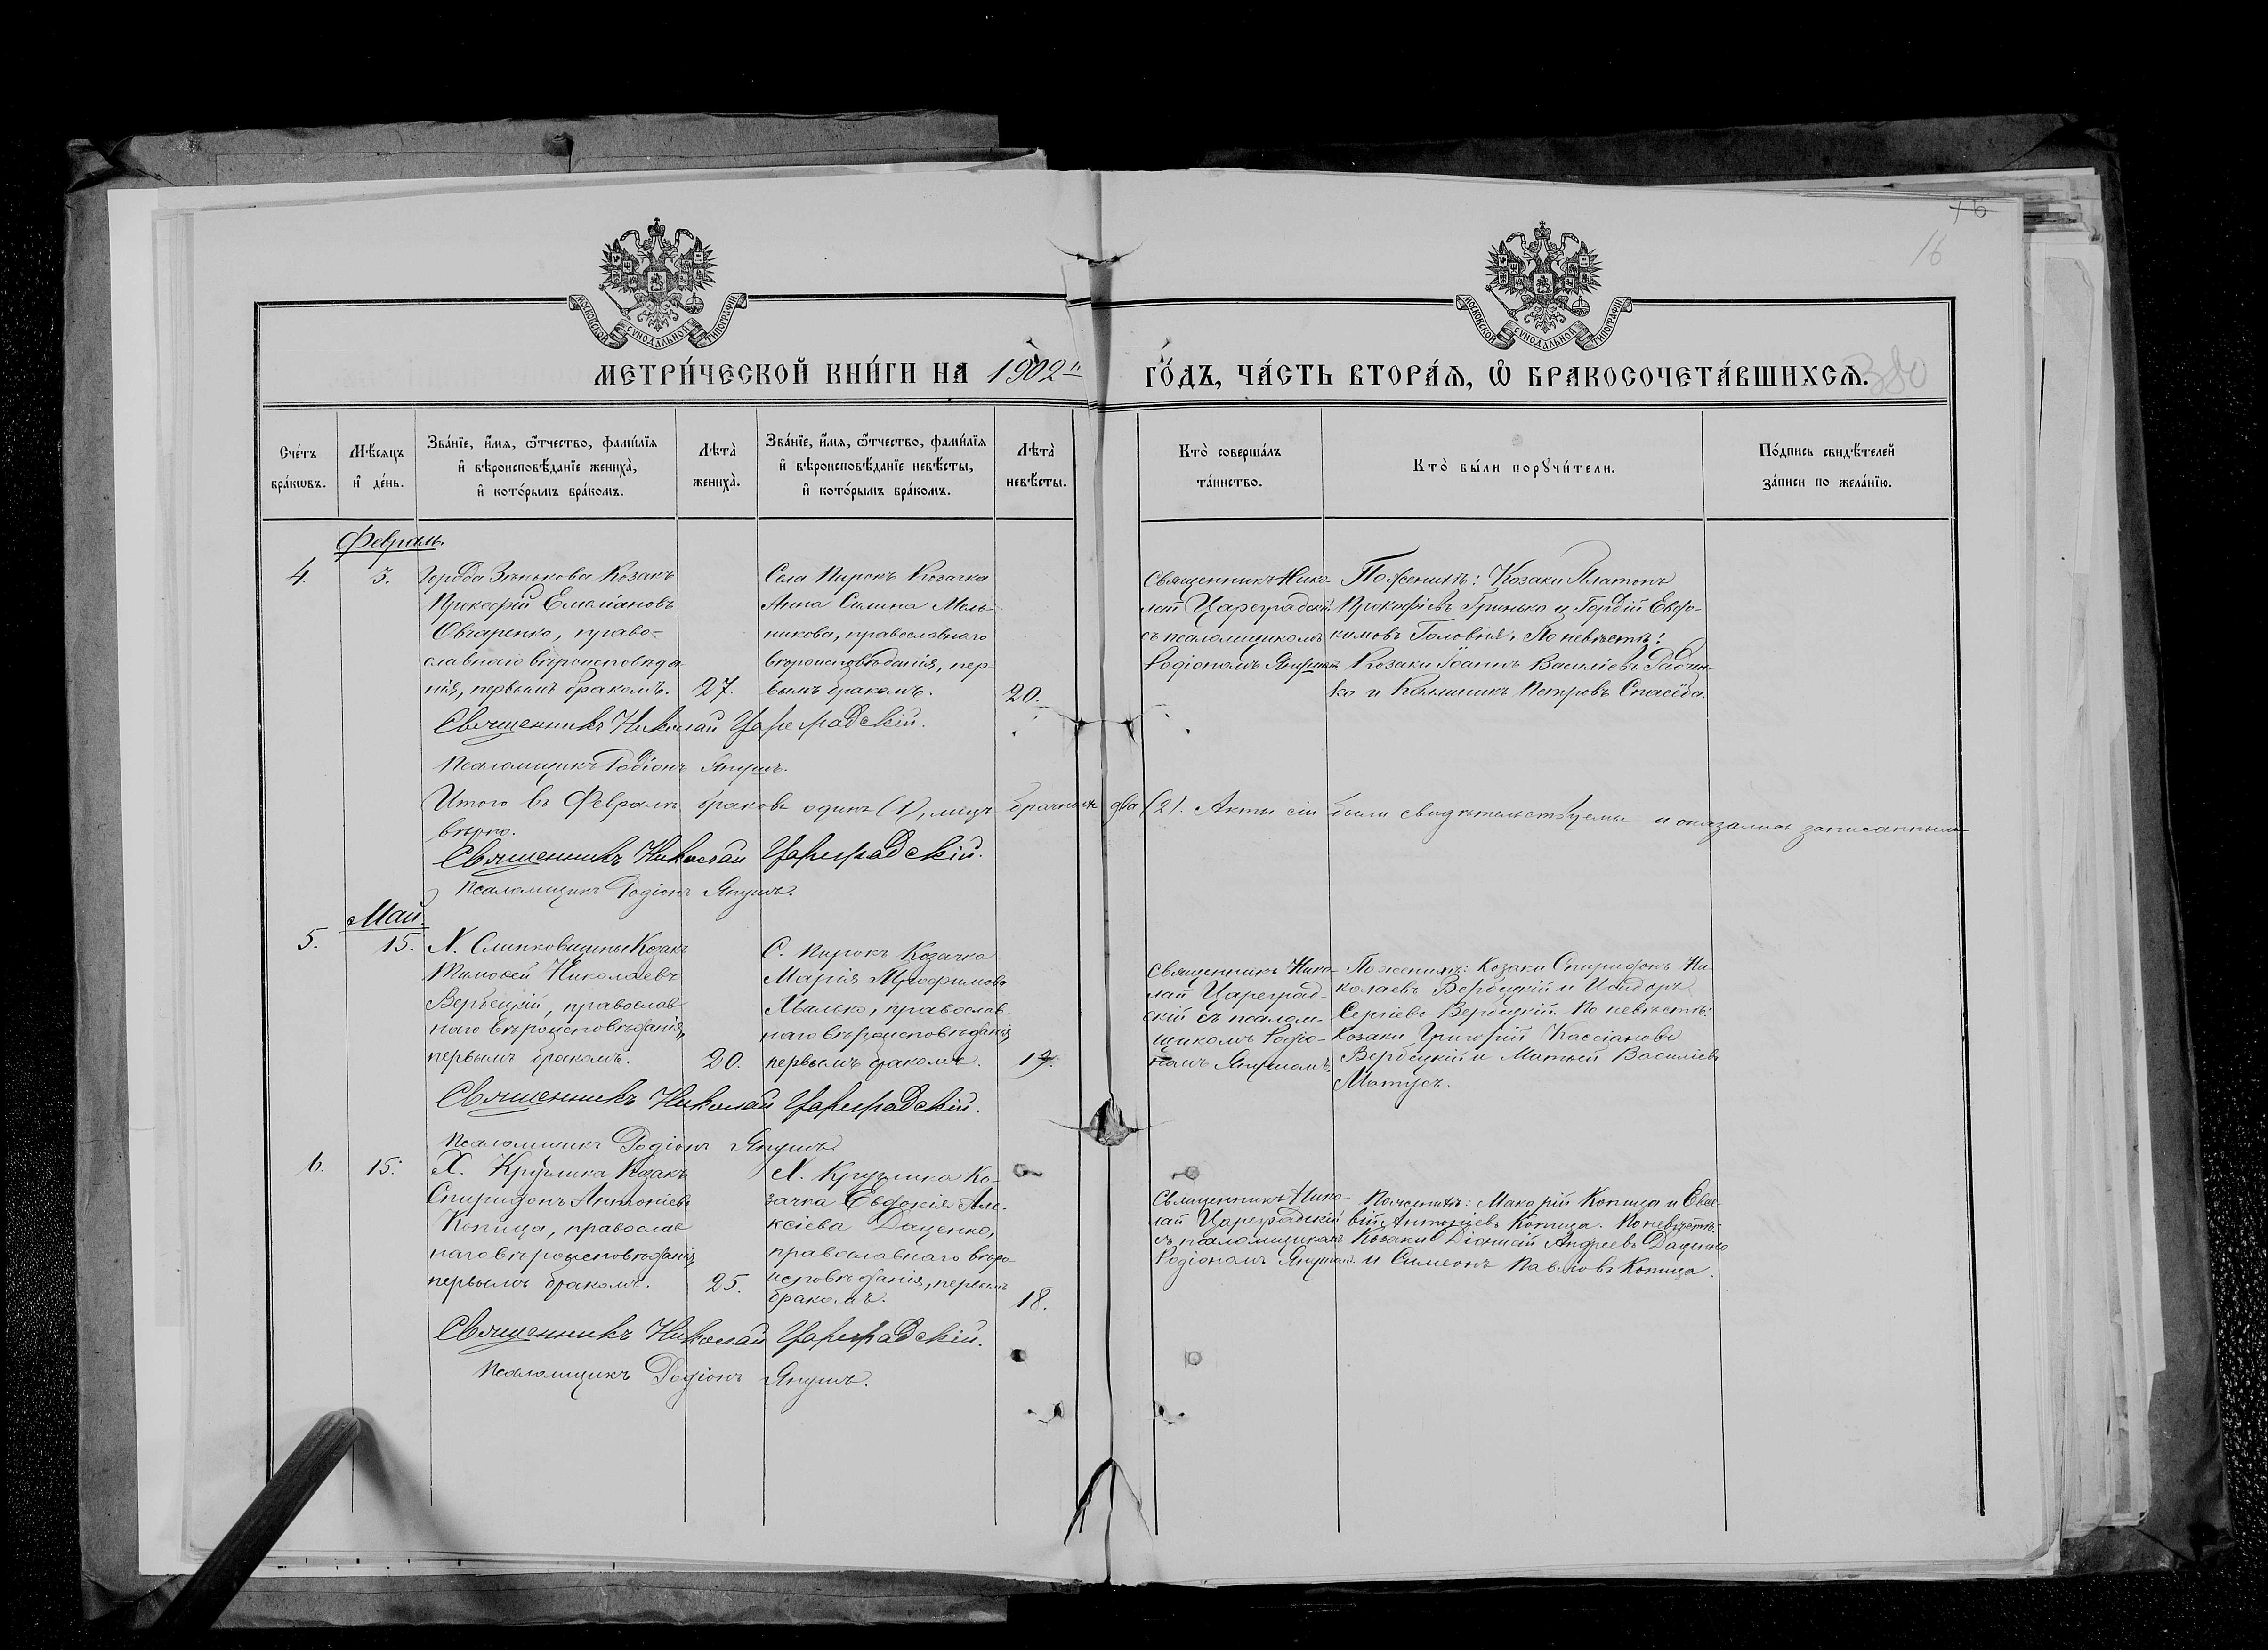 16
16
МОСКОВСКОЙ СѴНОДАЛЬНОЙ ТИПОГРАФІИ
МОСКОВСКОЙ СѴНОДАЛЬНОЙ ТИПОГРАФІИ
МЕТРИ́ЧЕСКОЙ КНИ́ГИ НА 1902 й
ГО́ДЪ, ЧА́СТЬ ВТОРА́Ѧ, Ѽ БРАКОСОЧЕТА́ВШИХСѦ.
380
Сче́тъ бра́кѡвъ.
Мѣ́сѧцъ и҆ де́нь.
Зва́нїе, и҆́мѧ, ѻ҆́тчество, фами́лїѧ
и҆ вѣроисповѣ́данїе жениха̀,
и҆ кото́рымъ бра́комъ.
Лѣта̀ жениха̀.
Зва́нїе, и҆́мѧ, ѻ҆́тчество, фами́лїѧ
и҆ вѣроисповѣ́данїе невѣ́сты,
и҆ кото́рымъ бра́комъ.
Лѣта̀ невѣ́сты.
Кто̀ соверша́лъ
та́инство.
Кто̀ бы́ли порꙋчи́тели.
По́дпись свидѣ́телей
за́писи по жела́нїю.
Февраль.
4.
3.
Города Зѣнькова Козакъ
Прокофій Емеліановъ
Овчаренко, право-
славнаго вѣроисповѣда-
нія, первымъ бракомъ.
27.
Села Пирокъ Козачка
Анна Силина Мель-
никова, православнаго
вѣроисповѣданія, пер-
вымъ бракомъ.
20.
Священникъ Нико-
лай Цареградскій
съ псаломщикомъ
Родіономъ Янушомъ
По женихѣ: Козаки Платонъ
Прокофіевъ Гринько и Гордій Евдо-
кимовъ Головня. По невѣстѣ:
Козаки Іоаннъ Василіевъ Радчен-
ко и Калинникъ Петровъ Спасёба.
Священникъ Николай Цареградскій.
Псаломщикъ Родіонъ Янушъ.
Итого въ Февралѣ браковъ одинъ (1), лицъ брачныхъ два (2). Акты сіи были свидѣтельствуемы и оказались записанными
вѣрно.
Священникъ Николай Цареградскій.
Псаломщикъ Родіонъ Янушъ.
Май.
5.
15.
Х. Слинковщины Козакъ
Тимоѳей Николаевъ
Вербецкій, православ-
наго вѣроисповѣданія,
первымъ бракомъ.
20.
С. Пирокъ Козачка
Марія Трофимова
Хвалько, православ-
наго вѣроисповѣданія
первымъ бракомъ.
19.
Священникъ Нико-
лай Цареград-
скій съ псалом-
щикомъ Родіо-
номъ Янушомъ.
По женихѣ: Козаки Спиридонъ Ни-
колаевъ Вербецкій и Исидоръ
Сергіевъ Вербецкій. По невѣстѣ:
Козаки Григорій Кассіановъ
Вербецкій и Матѳей Василіевъ
Матусъ.
Священникъ Николай Цареградскій.
Псаломщикъ Родіонъ Янушъ
6.
15.
Х. Круглика Козакъ
Спиридонъ Антоніевъ
Копица, православ-
наго вѣроисповѣданія
первымъ бракомъ.
25.
Х. Круглика Ко-
зачка Евдокія Але-
ксіева Даценко,
православнаго вѣро-
исповѣданія, первымъ
бракомъ.
18.
Священникъ Нико-
лай Цареградскій
съ псаломщикомъ
Родіономъ Янушом.
По женихѣ: Макарій Копица и Евсе-
вій Антоніевъ Копица. По невѣстѣ:
Козаки Діонисій Андреевъ Даценко
и Симеонъ Павловъ Копица.
Священникъ Николай Цареградскій.
Псаломщикъ Родіонъ Янушъ.